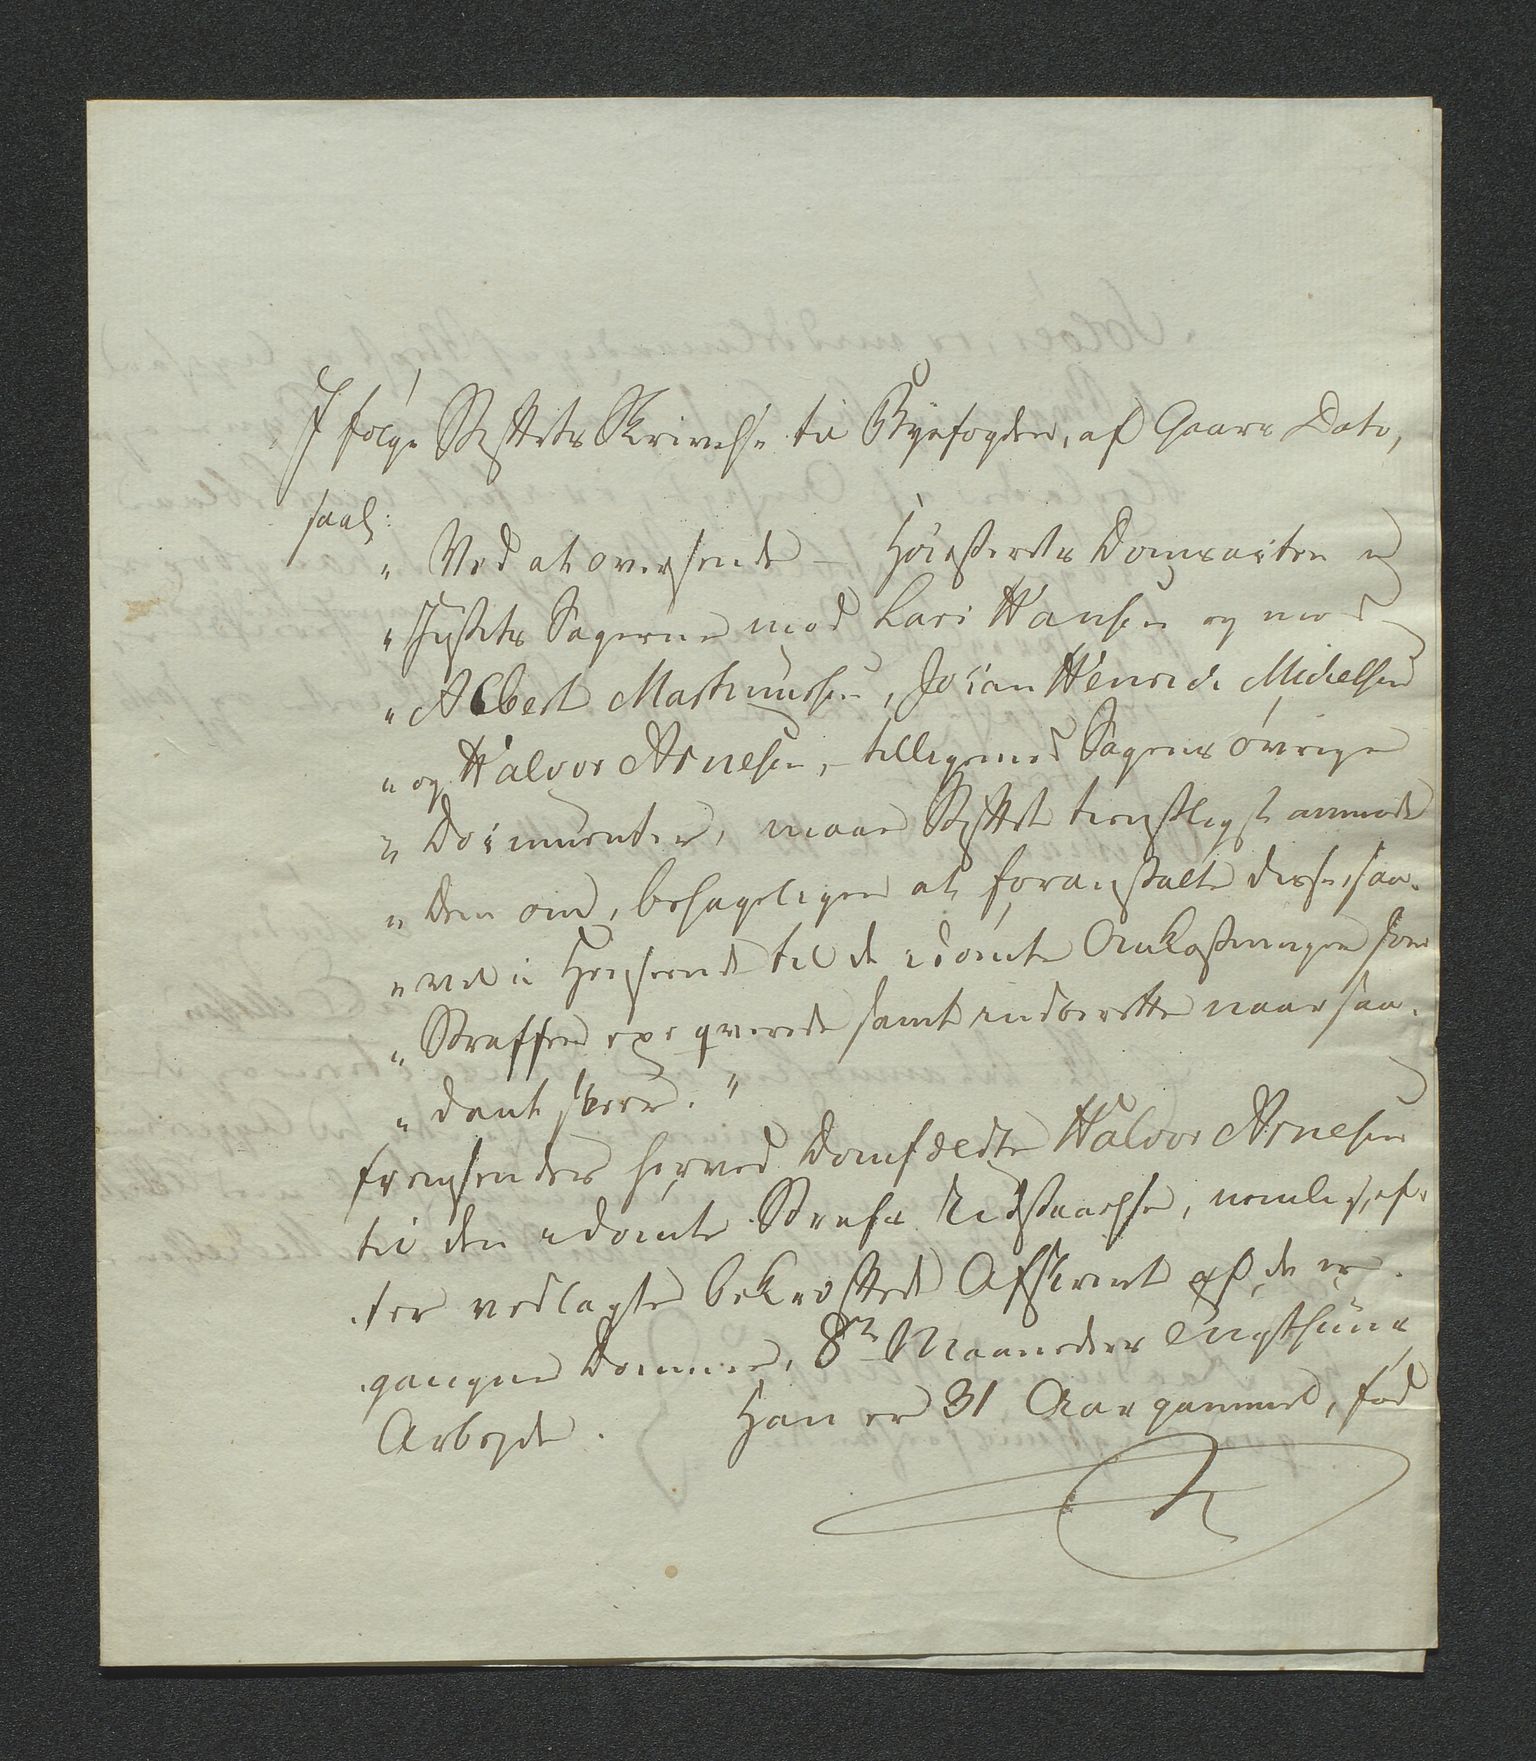 I følge Stiftets Skrivelse til Byefogden, af Gaars Dato,
saal:
" Ved at oversende – Høiesterets Domsacten i
" Justits Sagerne mod Lars Hansen og mod
" Albert Mathiussen, Johan Henrich Michelsen
" og Halvor Arnesen, – tilligemed Sagens øvrige
" Documenter, maae Stiftet tienstligst anmode
" Dem om, behageligen at foranstalte disse, saa-
" vel i Henseende til de idømte Omkostninger som
" Straffen exeqverede samt indberette naar saa-
" dant skeer. "
fremsendes herved Domfældte Halvor Arnesen
til den idømte Strafs Udstaaelse, nemlig, ef-
ter vedlagte bekræftede Afskrivt af de er-
gangne Domme, 8te Maaneders Tugthuus
Arbeyde. Han er 31 Aar gammel, fød